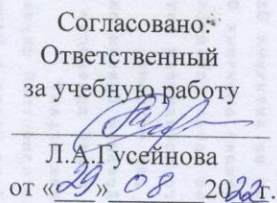 Согласовано:
Ответственный
за учебную работу
Л.А.Гусейнова
от «29» 08 2022г.